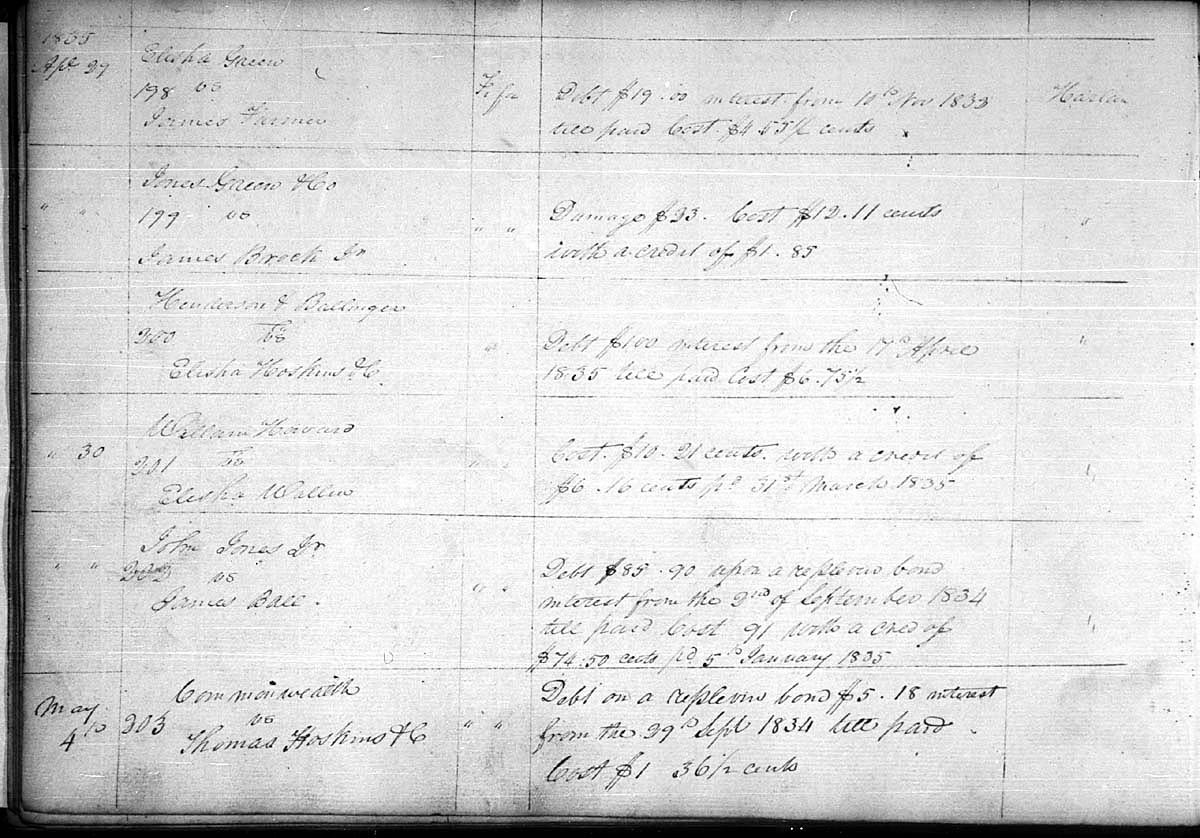 1835
Apl 29
Elisha Green
198 vs
James Farmer
Fi fa
Debt $19.00 interest from 10th Nov 1833
till paid Cost $4.45½ cents
Harlan
" "
Jones Green & Co
199 vs
James Brock Jr
" "
Damage $23. Cost $12.11 cents
with a credit of $1.85
"
Henderson & Ballinger
200 vs
Elisha Hoskins &C
"
Debt $100 interest from the 17th April
1835 till paid Cost $6.75½
"
" 30
William Havard
201 vs
Elisha Wallin
" "
Cost $10.21 cents. with a credit of
$6.16 cents pd 31st March 1835
"
" "
John Jones Jr
202 vs
James Ball.
" "
Debt $85.90 upon a replevin bond
interest from the 2nd of September 1834
till paid Cost 91 with a cred of
$74.50 cents pd 5th January 1835
"
May
4th
Commonwealth
203 vs
Thomas Hoskins &C
" "
Debt on a replevin bond $5.18 interest
from the 29th Sept 1834 till paid
Cost $1 36½ cents